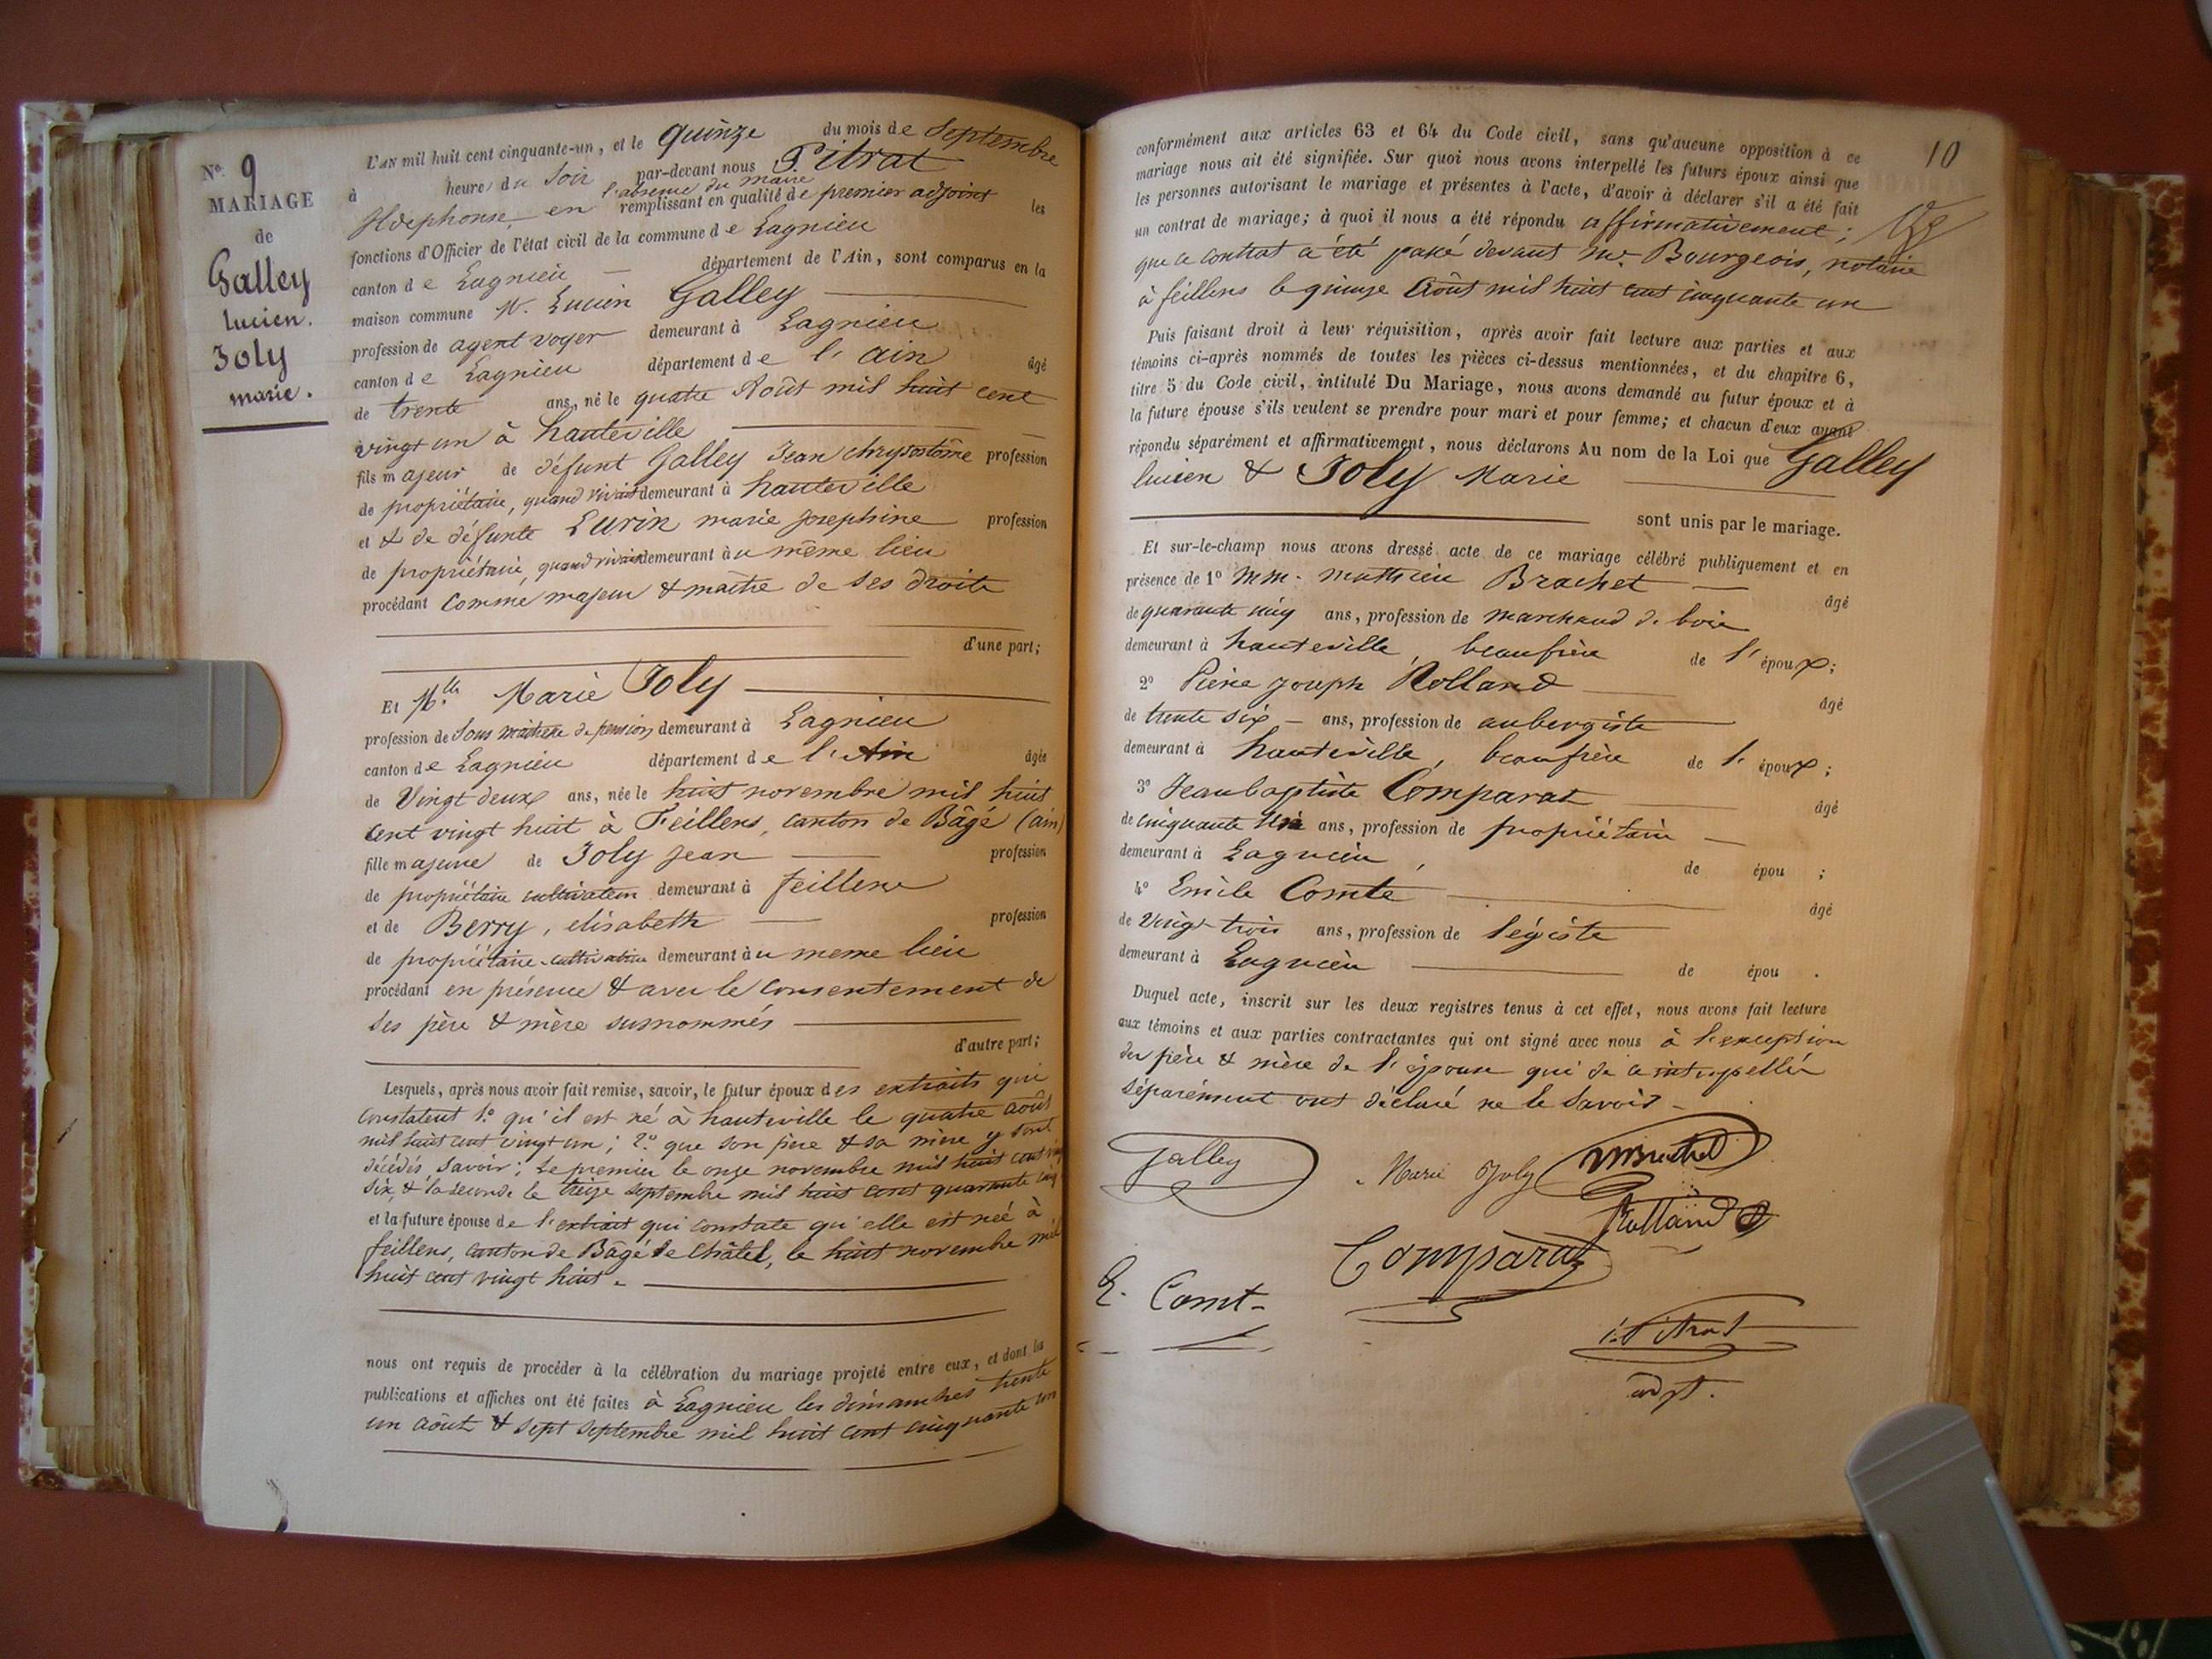 No. 9
MARIAGE
de
Galley
lucien.
Joly
marie.
L'AN mil huit cent cinquante-un, et le quinze du mois de Septembre
à heure du Soir par-devant nous Pitrat
Ildephonse, en l'absence du maire remplissant en qualité de premier adjoint les
fonctions d'Officier de l'état civil de la commune de Lagnieu
canton de Lagnieu département de l'Ain, sont comparus en la
maison commune M. Lucien Galley
profession de agent voyer demeurant à Lagnieu
canton de Lagnieu département de l'ain âgé
de trente ans, né le quatre Août mil huit cent
vingt un à hauteville
fils majeur de défunt Galley Jean chrysostôme profession
de propriétaire, quand vivait demeurant à hauteville
et & de défunte Lurin marie josephine profession
de propriétaire, quand vivait demeurant au même lieu
procédant comme majeur & maître de ses droits
d'une part;
Et Mlle Marie Joly
profession de Sous maîtresse de pension demeurant à Lagnieu
canton de Lagnieu département de l'Ain âgée
de Vingt deux ans, née le huit novembre mil huit
cent vingt huit à Feillens, canton de Bâgé (ain)
fille majeure de Joly jean profession
de propriétaire cultivateur demeurant à feillens
et de Berry, elisabeth profession
de propriétaire-cultivatrice demeurant au meme lieu
procédant en présence & avec le consentement de
ses père & mère susnommés
d'autre part;
Lesquels, après nous avoir fait remise, savoir, le futur époux des extraits qui
constatent 1o. qu'il est né à hauteville le quatre août
mil huit cent vingt un; 2o. que son père & sa mère y sont
décédés, Savoir; le premier le onze novembre mil huit cent vingt
six, & la seconde le treize septembre mil huit cent quarante cinq
et la future épouse de l'extrait qui constate qu'elle est née à
feillens, canton de Bâgé le Châtel, le huit novembre mil
huit cent vingt huit.
nous ont requis de procéder à la célébration du mariage projeté entre eux, et dont les
publications et affiches ont été faites à Lagnieu les dimanches trente
un août & sept septembre mil huit cent cinquante un
10
conformément aux articles 63 et 64 du Code civil, sans qu'aucune opposition à ce
mariage nous ait été signifiée. Sur quoi nous avons interpellé les futurs époux ainsi que
les personnes autorisant le mariage et présentes à l'acte, d'avoir à déclarer s'il a été fait
un contrat de mariage; à quoi il nous a été répondu affirmativement;
que ce contrat a été passé devant Me. Bourgeois, notaire
à feillens le quinze août mil huit cent cinquante un
Puis faisant droit à leur réquisition, après avoir fait lecture aux parties et aux
témoins ci-après nommés de toutes les pièces ci-dessus mentionnées, et du chapitre 6,
titre 5 du Code civil, intitulé Du Mariage, nous avons demandé au futur époux et à
la future épouse s'ils veulent se prendre pour mari et pour femme; et chacun d'eux ayant
répondu séparément et affirmativement, nous déclarons Au nom de la Loi que Galley
lucien & Joly Marie
sont unis par le mariage.
Et sur-le-champ nous avons dressé acte de ce mariage célébré publiquement et en
présence de 1o MM. Mathieu Brachet âgé
de quarante cinq ans, profession de marchand de bois
demeurant à hauteville, beaufrère de l'époux;
2o Pierre joseph Rolland âgé
de trente six ans, profession de aubergiste
demeurant à hauteville, beaufrère de l'époux;
3o Jeanbaptiste Comparat âgé
de cinquante ans, profession de propriétaire
demeurant à Lagnieu, de épou ;
4o Emile Comte âgé
de Vingt-trois ans, profession de légiste
demeurant à Lagnieu de épou .
Duquel acte, inscrit sur les deux registres tenus à cet effet, nous avons fait lecture
aux témoins et aux parties contractantes qui ont signé avec nous à l'exception
des père & mère de l'épouse qui de ce interpellés
séparément ont déclaré ne le Savoir
Galley Marie Joly MBrachet
Rolland
Comparat
E. Comt
i. Pitrat
adjt.